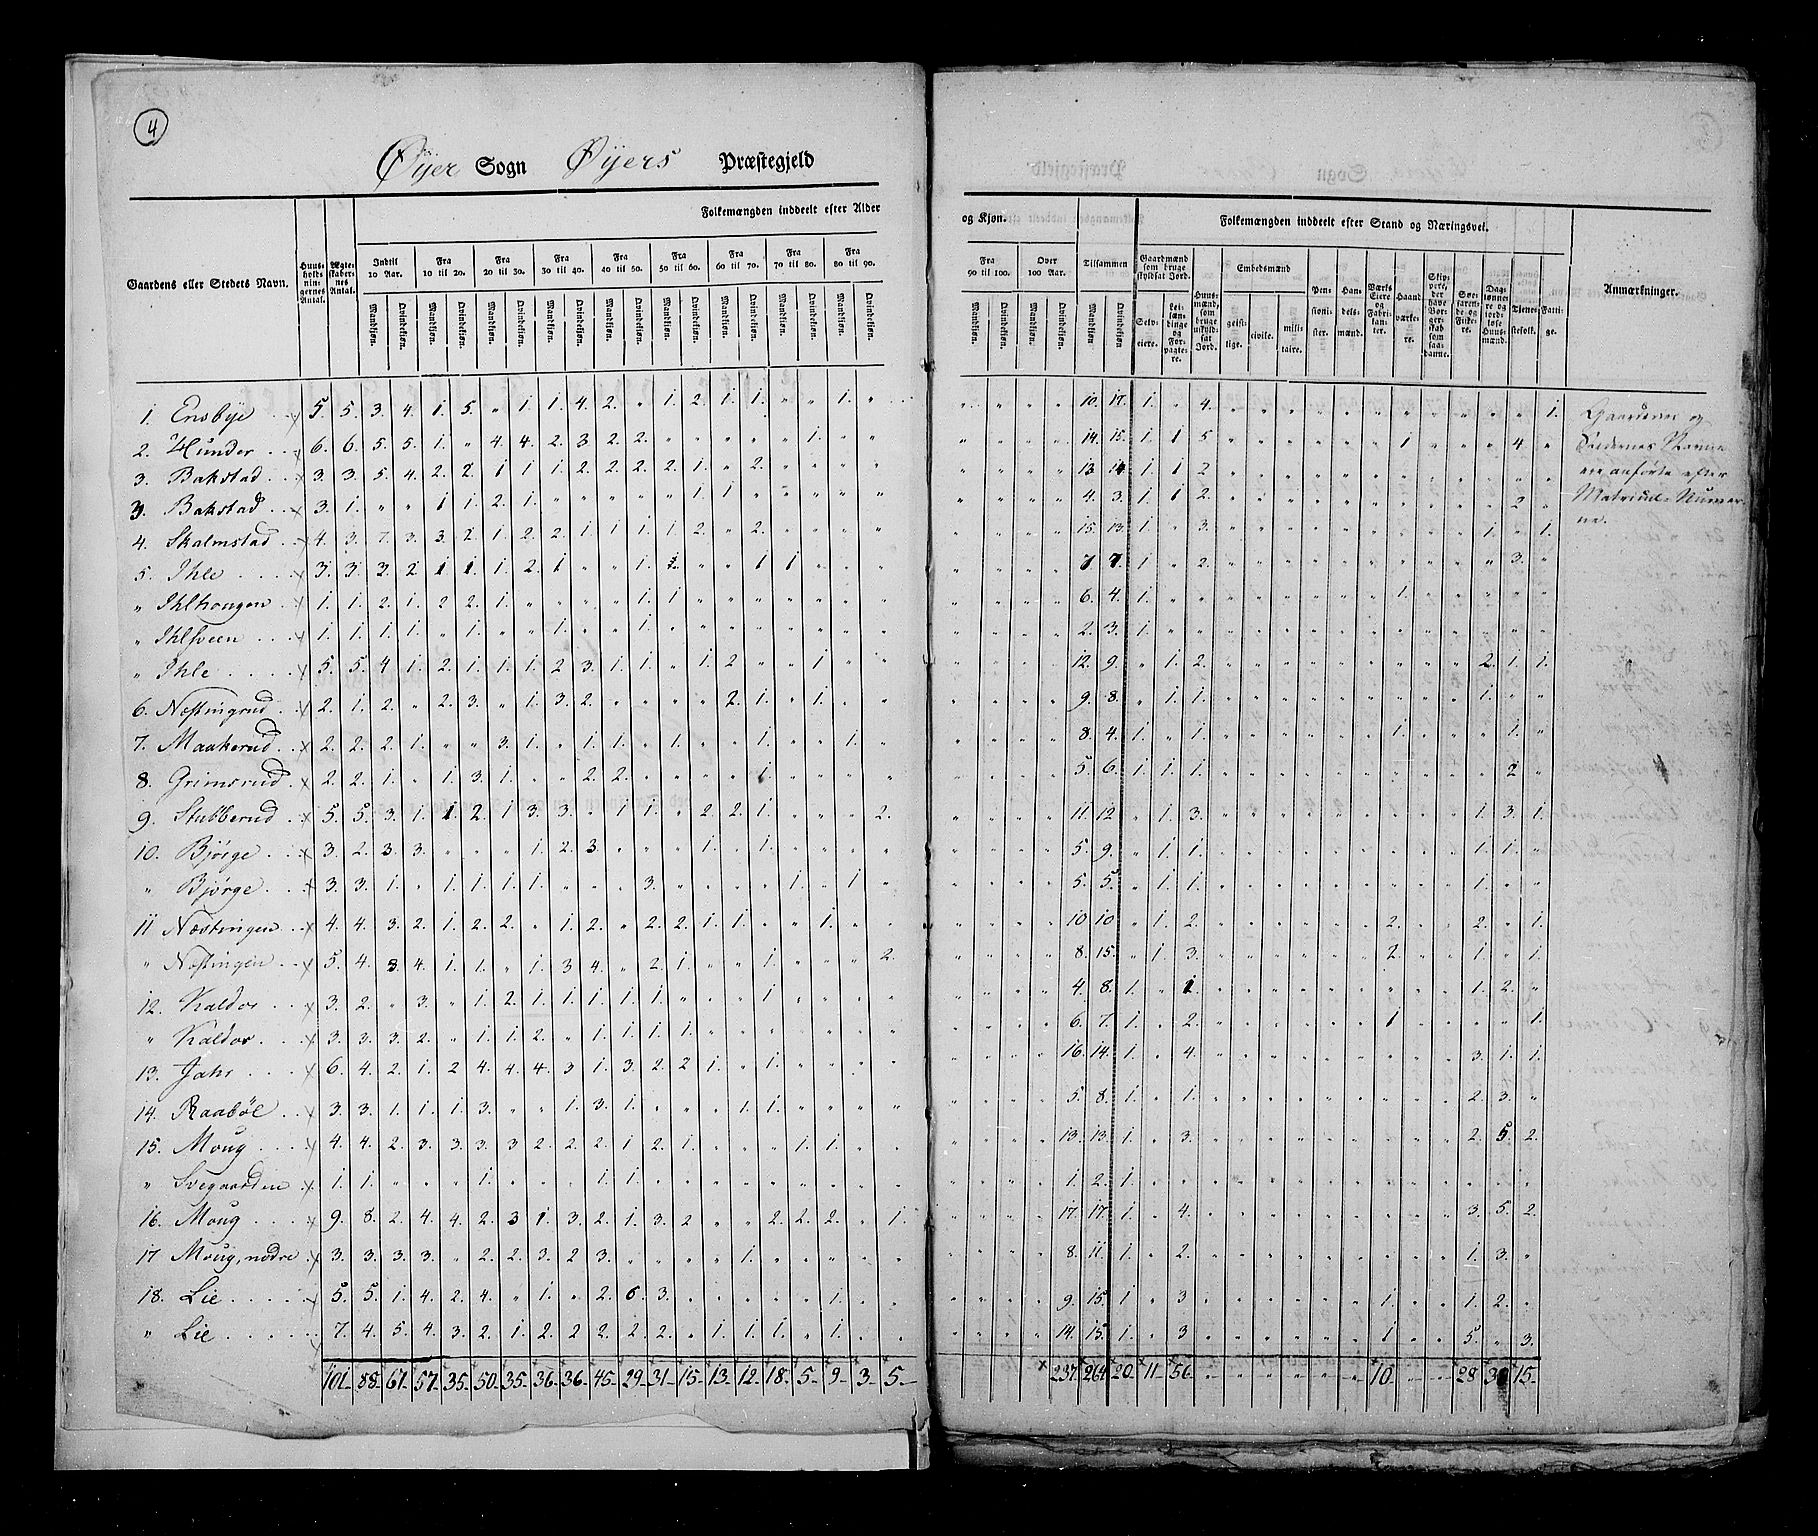 4
Öyer Sogn Öyers Præstegjeld
Folkemængden inddeelt efter Alder og Kjøn.
Folkemængden inddeelt efter Stand og Næringsvei.
Gaardens eller Stedets Navn.
Huus-holdnin-gernes Antal.
Ægte-skaber-nes Antal.
Indtil 10 Aar.
Fra 10 til 20.
Fra 20 til 30.
Fra 30 til 40.
Fra 40 til 50.
Fra 50 til 60.
Fra 60 til 70.
Fra 70 til 80.
Fra 80 til 90.
Fra 90 til 100.
Over 100 Aar.
Tilsammen
Mandkjøn. Qvindekjøn.
Gaardmænd som bruge skyldsat Jord.
Selv-eiere.
Lei-læn-dinge og For-pagte-re.
Huus-mænd, som bruge uskyld-sat Jord.
Embedsmænd
geist-lige. civile. mili-taire.
Pen-sioni-ster.
Han-dels-mænd.
Værks Eiere og Fabri-kanter.
Haand-værke-re.
Skip-pere, der have Bor-gerskab som saadanne.
Søe-farende og Fiske-re.
Dag-lønne-re og jord-løse Huus-mænd.
Tjene-stefolk.
Fatti-ge.
Anmærkninger.
1. Ensbye 5. 5. 3. 4. 1. 5. " 1. 1. 4. 2. " 1. 2. 1. 1. " " 1. " 10. 17. 1. " 4. 1.
2. Hunder 6. 6. 5. 5. 1. " 4. 4. 2. 3. 2. 2. " " " " " 1. " " 14. 15. 1. 1 5 1 4. "
3. Bakstad 3. 3. 5. 4. 2. 2. 1 1 1. 2. 2. 2. 2. 1. " 2. 13 14 1. 1 2.
3. Bakstad 3. 1. " " 1 1. 2. 1. 1. 1. 4. 3. 1. 1 2. 2 "
4. Skalmstad 4. 3. 7. 3. 3. 2. 1. 2. 2. 1. 1. 1. 1. 2. " 2. 15. 13. 1. " 3. 1. " 1.
5. Ihle 3. 3. 3. 2. 1 1. 1. 2. 1 " " 1. 1. " " 1 1 7 7. 1. " 2. " 3. "
" Ihlhougen 1. 1. 2. 1. 2 2. 1. " " " " 1. 1. 6. 4. 1. 1.
" Ihlsveen 1. 1. 1. 1. " 1. " " 1. " " 1. 2. 3. 1.
" Ihle 5. 5. 4. 1. 2. 1. 1. 1. 2. 3. 1. 1. " 1. 2. " " 1. 12. 9. " 1. 2. 2. 1. 1.
6. Næstingrud 2. 1. 2. " 2. 3. " 1. 3. 2. " " " " 2. 1. " 1. 9. 8. " 1. 1. 1. " "
7. Maakerud 2. 2. 2. 1. " " 3. 1. " 1. 1. " 1. " " 1. " " 1. " 8. 4. 1. 1. 1. 1. 1. "
8. Grimsrud 2. 2. 1. " 1. 3. 1. " " 2. 2. 1. 5. 6. 1. 1. 1. " 2 "
9. Stubberud 5. 5. 3. 1. 1 2. 1 3. 3. " 1 1. " 2. 2. 1. 2. 11. 12 " 1. 3. 1. 3. 1.
10. Bjørge 3. 2. 3. 3. " " " 1. 2. 3. " " " 1. " 1. 5. 9. " 1. 1. 1. 1. "
" Bjørge 3. 3. 1. " 1. 1. 1. 1. " " " 3. " " " " 1. " 1 " 5. 5. " 1. 1. 1. " "
11 Næstingen 4. 4. 3. 2. 1. 2. 2. " 1. 2. " 2. 2. 1. 1. " " 1. " " 10 10. " 1. 2. 2. 2. " 1.
" Næstingen 5. 4. 3. 4. 1. 1. " 1. 3 4. " 2. 1. " " 1. " " " 2. 8. 15. " 1. 3. 2. 1. " 1.
12. Kaldor 3. 2. " 3. " 1. 2. 1. 1. 1. 1. 1. " " " 1. 4. 8. 1. " 1. 1. 2. "
" Kaldor 3. 3. 3. 2. " 1. 1. 2. " 1. 1. 1. 1. 6. 7. 1. " 2. 1 " " 1.
13. Jahr 6. 4. 2. 1. 2 4. 4. 4. 3 1. 3. 2. 2 1. " 1. 16. 14. 1. " 4. 3. 1. 1.
14. Raabøl 3. 3. 1. 1. 1. 3. " " 1. 3. 1. " " " 1. 1. 5. 8. 1. " 1. 2. 3. "
15. Moug 4. 4. 2. 3. 3. 3. 3 2. 2. 2. 1. 2. 1. " " " 1. 1. 13. 13. 1. " 3. 2. 5. 2.
" Svegaarden 1. 1. " " " 1. " " " 1. 1. 1. 2. 1.
16. Moug 9. 8. 2. 4. 4. 2. 3 1. 3. 2. 1. 3. 2 " " 2. 2. 2. " 1. 17. 17. 1. " 4. 3. 5. 2.
17 Moug, nedre 3. 3. 3. 3. " 2. 2. 3. 2 3. " " " " 1. 8. 11. 1. " 2. 1. 3. "
18. Lie 5. 5. 1. 4. 2. 4. " 1. " 2. 6. 3. 1. 9. 15. 1 " 3 1. 1. 2. "
" Lie 7. 4. 5. 4. 3. 2. 1. 2. 2 2. 2. 2. " 1. 1. 1. " 1. 14. 15. 1. " 3 1 5. " 3.
101 88. 67. 57. 35. 50. 35. 36. 36. 45. 29. 31. 15. 13. 12. 18. 5. 9. 3. 5. 237. 264. 20. 11. 56. 10. 28 15.
Gaardenes og
Stedernes Navne
ere anførte efter
Matricul-Numer-
ne.